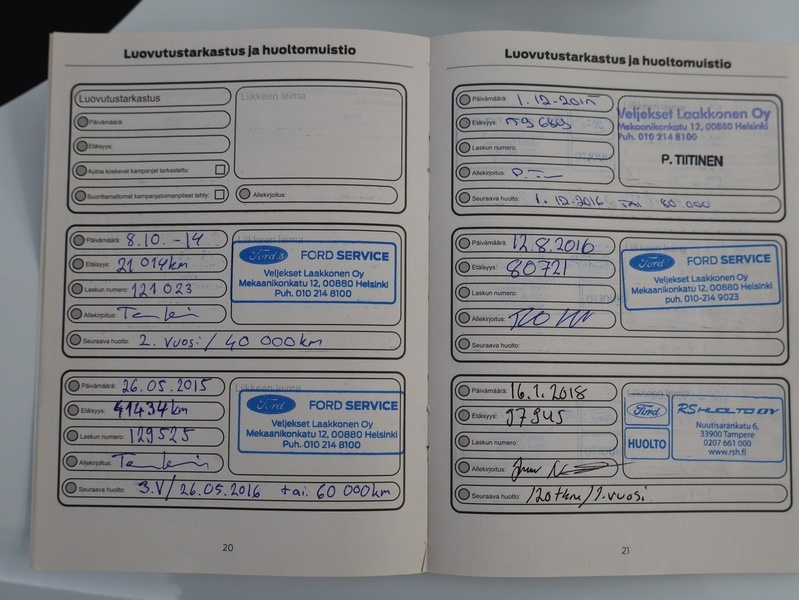 Luovutustarkastus ja huoltomuistio
Luovutustarkastus
Liikkeen leima
Päivämäärä:
Etäisyys:
Autoa koskevat kampanjat tarkastettu:
Suorittamattomat kampanjatoimenpiteet tehty:
Allekirjoitus:
Päivämäärä: 8.10.-14
Etäisyys: 21 014km
Laskun numero: 121 023
Allekirjoitus:
Liikkeen leima
Ford FORD SERVICE
Veljekset Laakkonen Oy
Mekaanikonkatu 12, 00880 Helsinki
Puh. 010 214 8100
Seuraava huolto: 2. vuosi / 40 000km
Päivämäärä: 26.05.2015
Etäisyys: 41434km
Laskun numero: 129525
Allekirjoitus:
Liikkeen leima
Ford FORD SERVICE
Veljekset Laakkonen Oy
Mekaanikonkatu 12, 00880 Helsinki
Puh. 010 214 8100
Seuraava huolto: 3.V/ 26.05.2016 tai 60 000km
20
Luovutustarkastus ja huoltomuistio
Päivämäärä: 1.12-2015
Etäisyys:
Laskun numero:
Allekirjoitus:
Veljekset Laakkonen Oy
Mekaanikonkatu 12, 00880 Helsinki
Puh. 010 214 8100
P. TIITINEN
Seuraava huolto: 1.12-2016 TAI 80 000
Päivämäärä: 12.8.2016
Etäisyys: 80721
Laskun numero:
Allekirjoitus:
Ford FORD SERVICE
Veljekset Laakkonen Oy
Mekaanikonkatu 12, 00880 Helsinki
puh. 010-214 9023
Seuraava huolto:
Päivämäärä: 16.1.2018
Etäisyys: 97945
Laskun numero:
Allekirjoitus:
Ford
HUOLTO
RS HUOLTO OY
Nuutisarankatu 6,
33900 Tampere
0207 661 000
www.rsh.fi
Seuraava huolto: 120tkm/1.vuosi
21